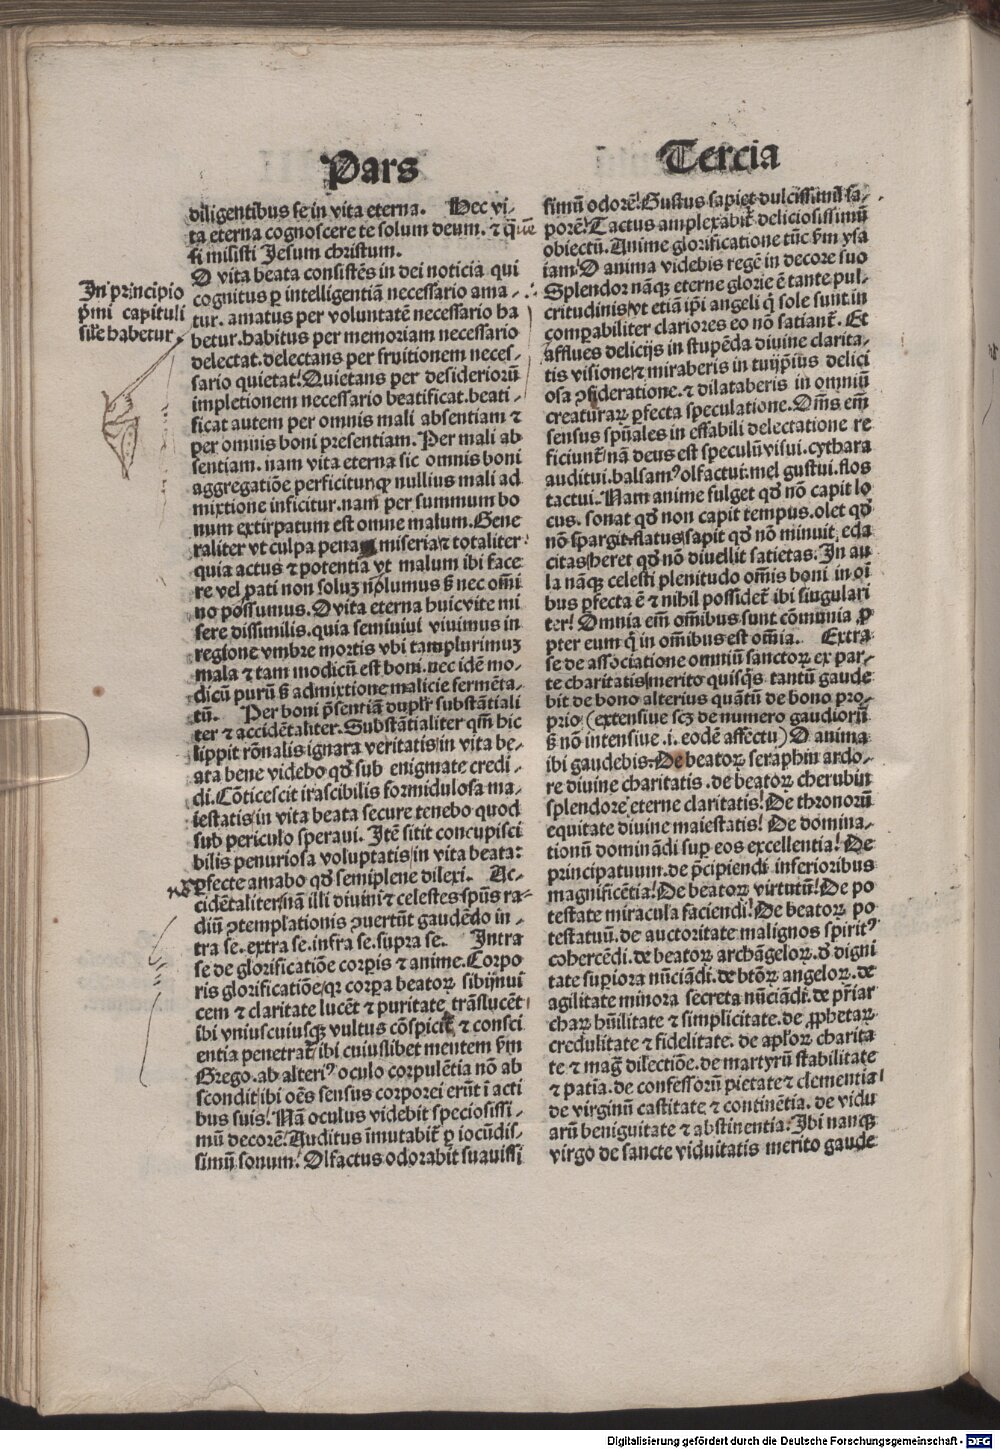 Pars
Tercia
In principio
p̄mi capituli
sil'e habetur.
diligentibus se in vita eterna. Hec vi-
ta eterna cognoscere te solum deum. ⁊ quē
si misisti Jesum christum.
O vita beata consistēs in dei noticia qui
cognitus ꝑ intelligentiā necessario ama-
tur. amatus per voluntatē necessario ha
betur. habitus per memoriam necessario
delectat. delectans per fruitionem neces-
sario quietat! Quietans per desideriorū
impletionem necessario beatificat. beati-
ficat autem per omnis mali absentiam ⁊
per omnis boni presentiam. Per mali ab
sentiam. nam vita eterna sic omnis boni
aggregatiōe perficitur qꝫ nullius mali ad
mixtione inficitur. nam per summum bo
num extirpatum est omne malum. Gene
raliter vt culpa pena miseria ⁊ totaliter
quia actus ⁊ potentia vt malum ibi face
re vel pati non soluꝫ nolumus sꝫ nec om̄i
no possumus. O vita eterna huic vite mi
sere dissimilis. quia semiuiui viuimus in
regione vmbre mortis vbi tam plurimuꝫ
mala ⁊ tam modicū est boni. nec idē mo-
dicū purū sꝫ admixtione malicie fermēta-
tū. Per boni p̄sentiā duplr̄ substātiali
ter ⁊ accidētaliter. Substātialiter qm̄ hic
lippit rōnalis ignara veritatis/ in vita be-
ata bene videbo qd̄ sub enigmate credi-
di. Cōticescit irascibilis formidulosa ma-
iestatis/ in vita beata secure tenebo quod
sub periculo speraui. Itē sitit concupisci
bilis penuriosa voluptatis/ in vita beata:
ꝑfecte amabo qd̄ semiplene dilexi. Ac-
cidētaliter/ nā illi diuini ⁊ celestes spūs ra-
diū ꝯtemplationis ꝯuertūt gaudēdo in-
tra se. extra se. infra se. supra se. Intra
se de glorificatiōe corꝑis ⁊ anime. Corpo
ris glorificatiōe/ qr corꝑa beatoꝝ sibijnui
cem ⁊ claritate lucēt ⁊ puritate trāslucēt
ibi vniuscuiusqꝫ vultus cōspicit̄ ⁊ consci
entia penetrat̄/ ibi cuiuslibet mentem ẜm
Grego. ab alteriꝰ oculo corpulētia nō ab
scondit/ ibi oēs sensus corporei erūt ī acti
bus suis! Nā oculus videbit speciosissi-
mū decorē! Auditus īmutabit̄ ꝑ iocūdis-
simū sonum! Olfactus odorabit suauissi
simū odorē! Gustus sapiet dulcissimū sa-
porē! Tactus amplexabit̄ deliciosissimū
obiectū. Anime glorificatione tūc ẜm ysa
iam! O anima videbis regē in decore suo
Splendor nāqꝫ eterne glorie ē tante pul-
critudinis/ vt etiā ip̄i angeli q̄ sole sunt in
comꝑabiliter clariores eo nō satiant̄. Et
afflues delicijs in stupēda diuine clarita-
tis visione ⁊ miraberis in tuijp̄ius delici
osa ꝯsideratione. ⁊ dilataberis in omniū
creaturaꝝ ꝑfecta speculatione. Om̄s em̄
sensus spūales in effabili delectatione re
ficiunt̄/ nā deus est speculū visui. cythara
auditui. balsamꝰ olfactui. mel gustui. flos
tactui. Nam anime fulget qd̄ nō capit lo
cus. sonat qd̄ non capit tempus. olet qd̄
nō spargit flatus/ sapit qd̄ nō minuit eda
citas/ heret qd̄ nō diuellit satietas. In au
la nāqꝫ celesti plenitudo om̄is boni in oī
bus ꝑfecta ē ⁊ nihil possidet̄ ibi singulari
ter! Omnia em̄ om̄ibus sunt cōmunia ꝓ
pter eum q̄ in om̄ibus est om̄ia. Extra
se de associatione omniū sanctoꝝ ex par-
te charitatis/ merito quisqꝫ tantū gaude
bit de bono alterius quātū de bono pro-
prio (extensiue scꝫ de numero gaudiorū
sꝫ nō intensiue .i. eodē affectu) O anima
ibi gaudebis. De beatoꝝ seraphin ardo-
re diuine charitatis. de beatoꝝ cherubin
splendore eterne claritatis! De thronorū
equitate diuine maiestatis! De domina-
tionū dominādi suꝑ eos excellentia! De
principatuum. de p̄cipiendi inferioribus
magnificētia! De beatoꝝ virtutū! De po
testate miracula faciendi! De beatoꝝ po
testatuū. de auctoritate malignos spiritꝰ
cohercēdi. de beatoꝝ archāgeloꝝ. d̄ digni
tate suꝑiora nūciādi. de btōꝝ angeloꝝ. de
agilitate minora secreta nūciādi. de pr̄iar
chaꝝ hūilitate ⁊ simplicitate. de ꝓphetaꝝ
credulitate ⁊ fidelitate. de apl'oꝝ charita
te ⁊ maḡ dilectiōe. de martyrū stabilitate
⁊ patiā. de confessorū pietate ⁊ clementia
de virginū castitate ⁊ continētia. de vidu
arū benignitate ⁊ abstinentia. Ibi nanqꝫ
virgo de sancte viduitatis merito gaude
Digitalisierung gefördert durch die Deutsche Forschungsgemeinschaft - DFG